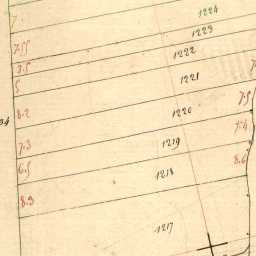 1224
7.
1223
7.55
1222
3.5
1221
5
7.5
8.2
1220
34
7.4
7.3
1219
8.6
6.5
1218
8.9
1217